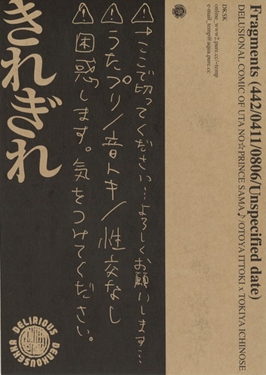 Fragments (442/0411/0806/Unspecified date)
DELUSIONAL COMIC OF UTA NO☆PRINCE SAMA♪/OTOYA ITTOKI x TOKIYA ICHINOSE
DK.SK
きれぎれ
ここで切ってください…よろしくお願いします…
うたプリ/音トキ/性交なし
困惑します。気をつけてください。
DELIRIOUS